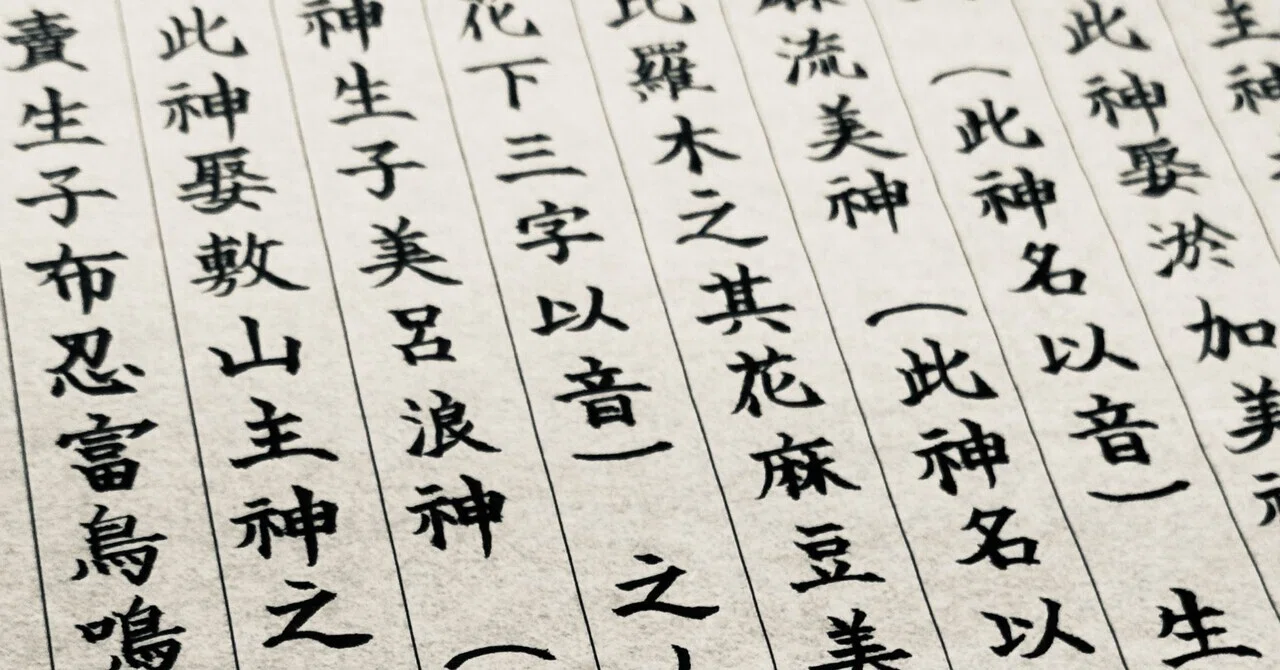 主神
此神娶淤加美神
（此神名以音） 生
麻流美神 （此神名以
比羅木之其花麻豆美
花下三字以音） 之
神生子美呂浪神 （
此神娶敷山主神之
賣生子布忍富鳥鳴